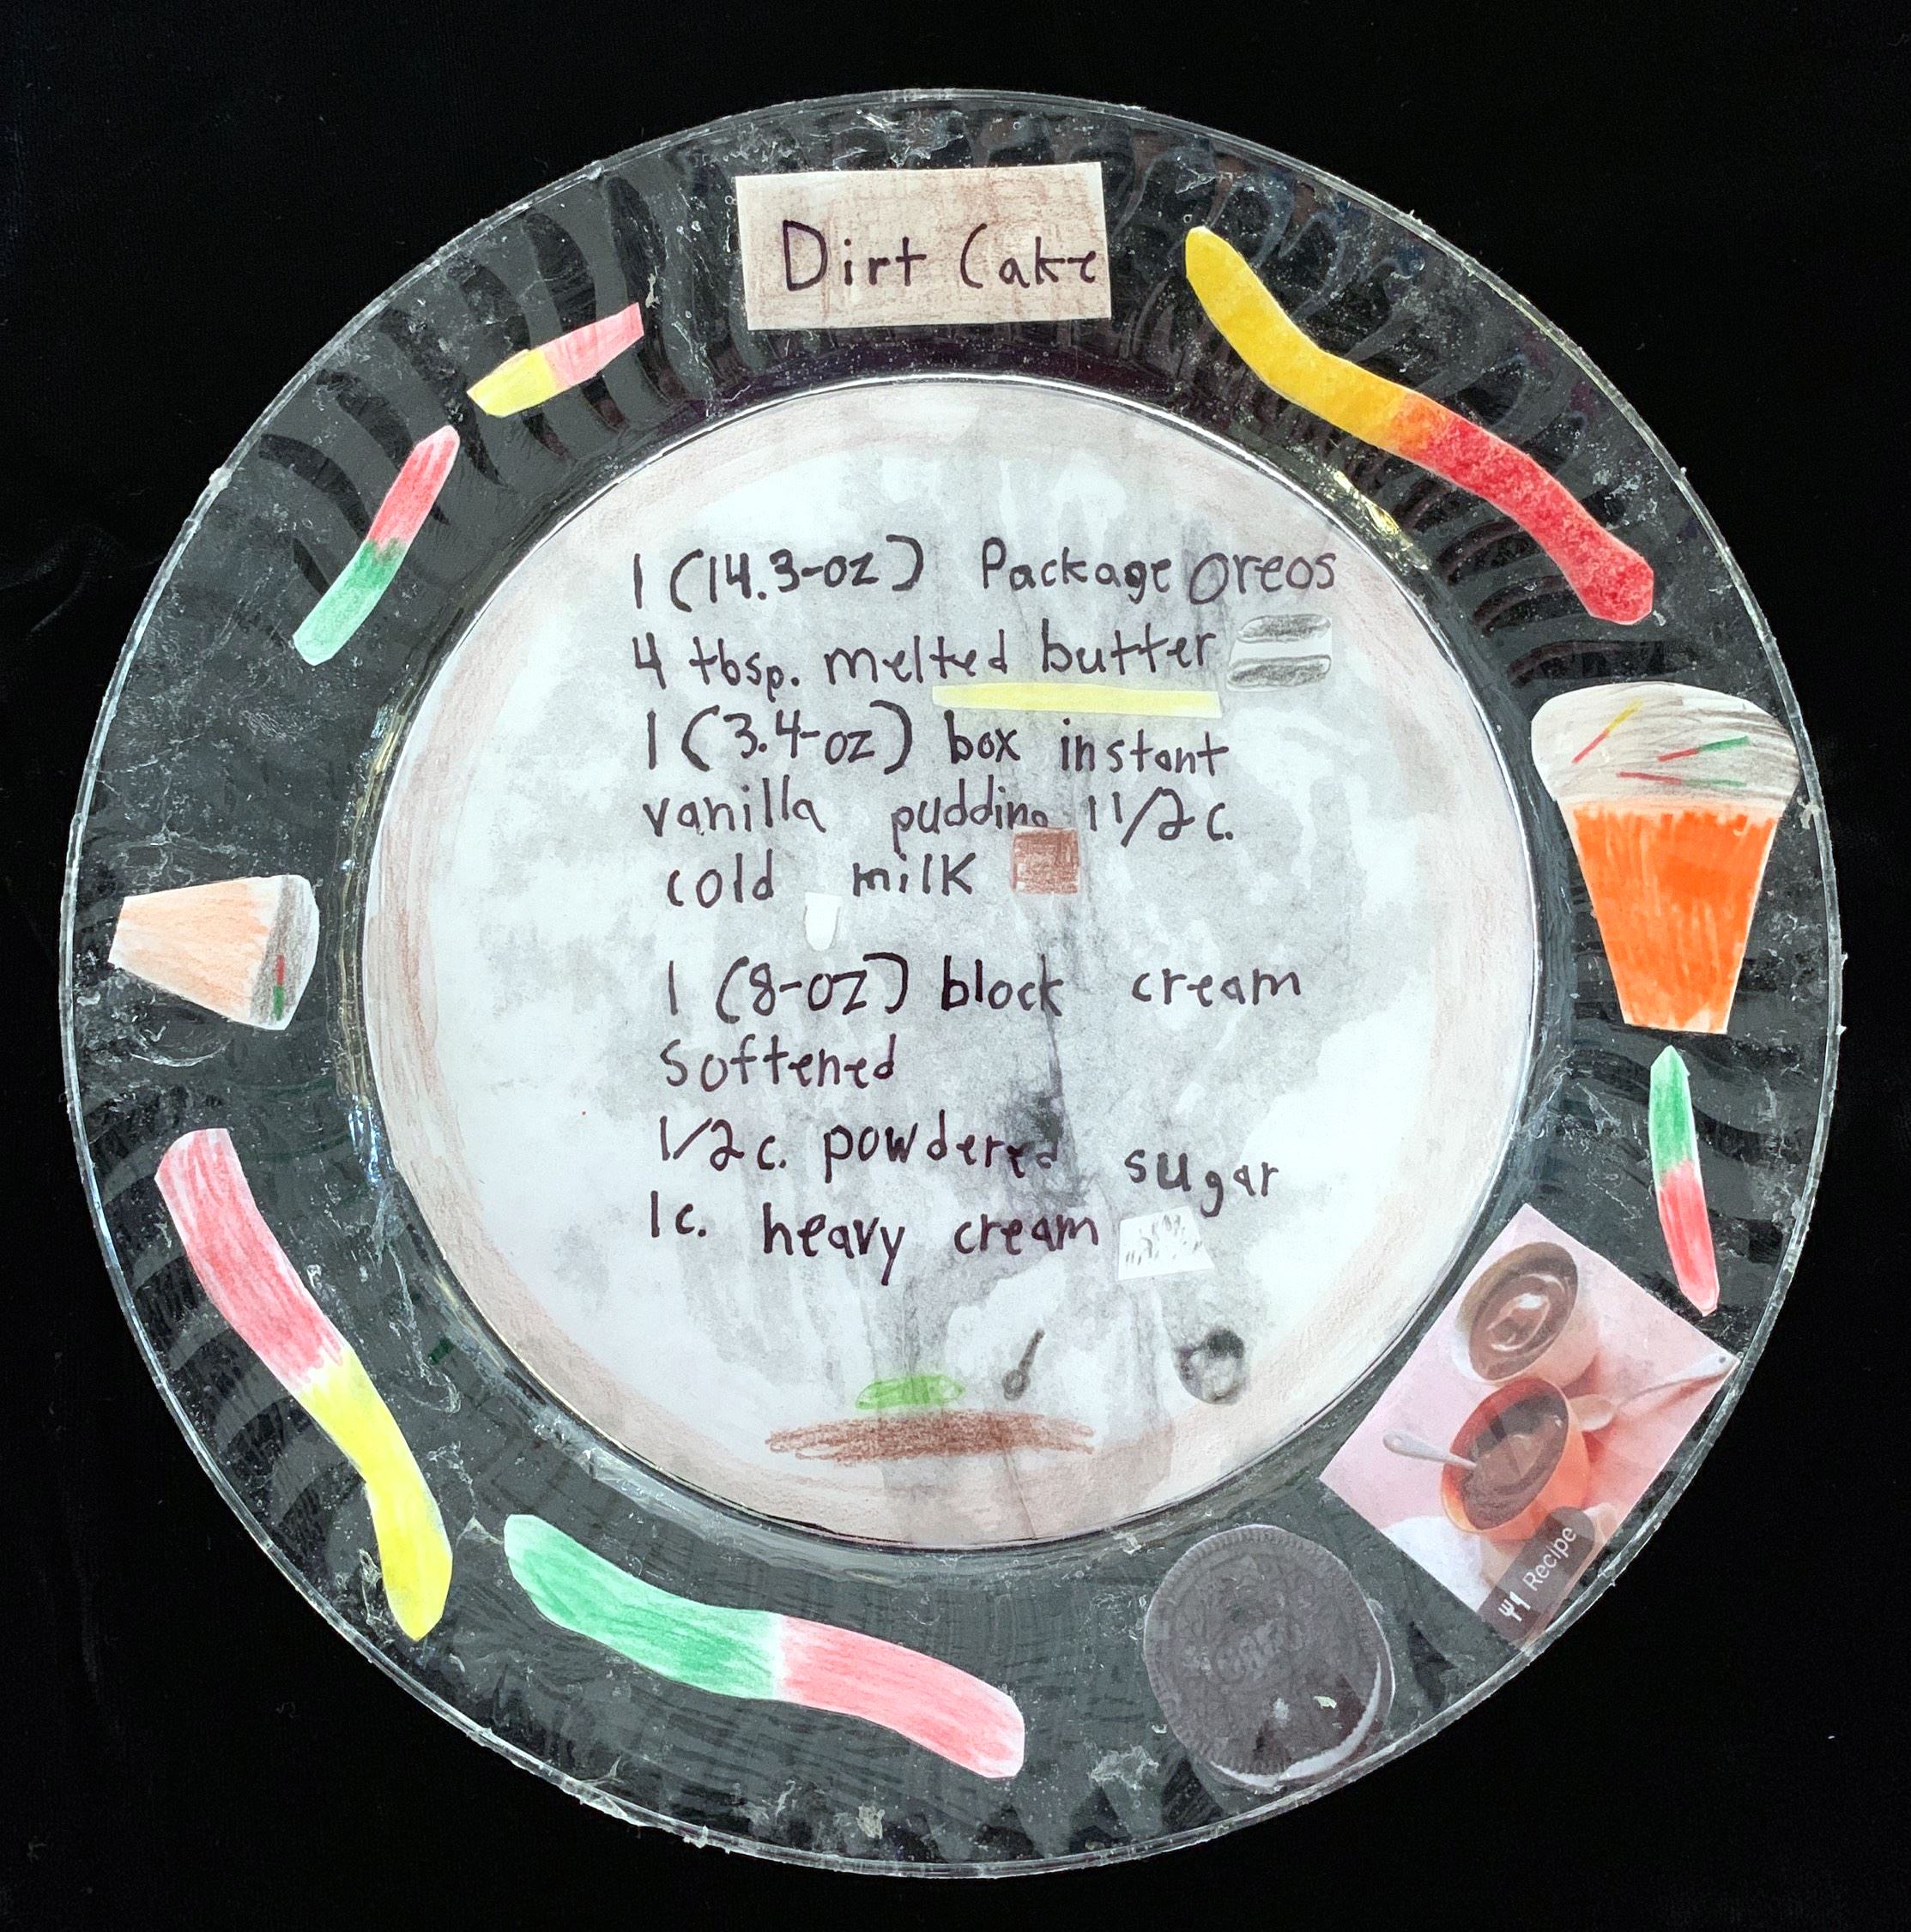 Dirt Cake
1 (14.3-oz) Package oreos
4 tbsp. melted butter
1 (3.4-oz) box instant
vanilla pudding 1 1/2 c.
cold milk
1 (8-oz) block cream
softened
1/2 c. powdered sugar
1 c. heavy cream
Recipe
OREO